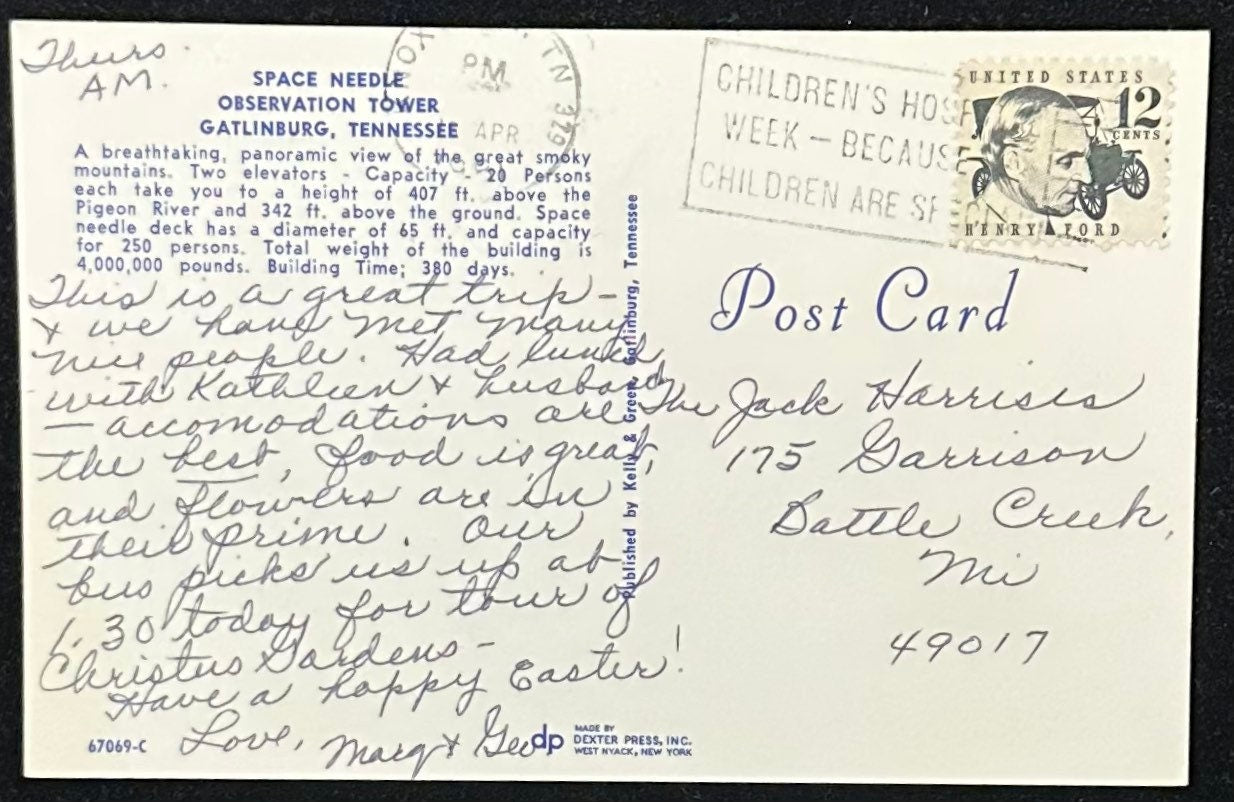 Thurs.
AM.
SPACE NEEDLE
OBSERVATION TOWER
GATLINBURG, TENNESSEE
A breathtaking, panoramic view of the great smoky
mountains. Two elevators - Capacity - 20 Persons
each take you to a height of 407 ft. above the
Pigeon River and 342 ft. above the ground. Space
needle deck has a diameter of 65 ft. and capacity
for 250 persons. Total weight of the building is
4,000,000 pounds. Building Time; 380 days.
This is a great trip -
& we have met many
nice people. Had lunch
with Kathleen & husband
- accomodations are
the best, food is great,
and flowers are in
their prime. Our
bus picks us up at
1:30 today for tour of
Christus Gardens -
Have a happy Easter!
Love, Marg & Geo
67069-C
dp
MADE BY
DEXTER PRESS, INC.
WEST NYACK, NEW YORK
Published by Kelly & Green, Gatlinburg, Tennessee
PM
APR
TN 379
CHILDREN'S HOSP
WEEK - BECAUSE
CHILDREN ARE SPECIAL
UNITED STATES
12
CENTS
HENRY FORD
Post Card
The Jack Harrises
175 Garrison
Battle Creek,
Mi
49017